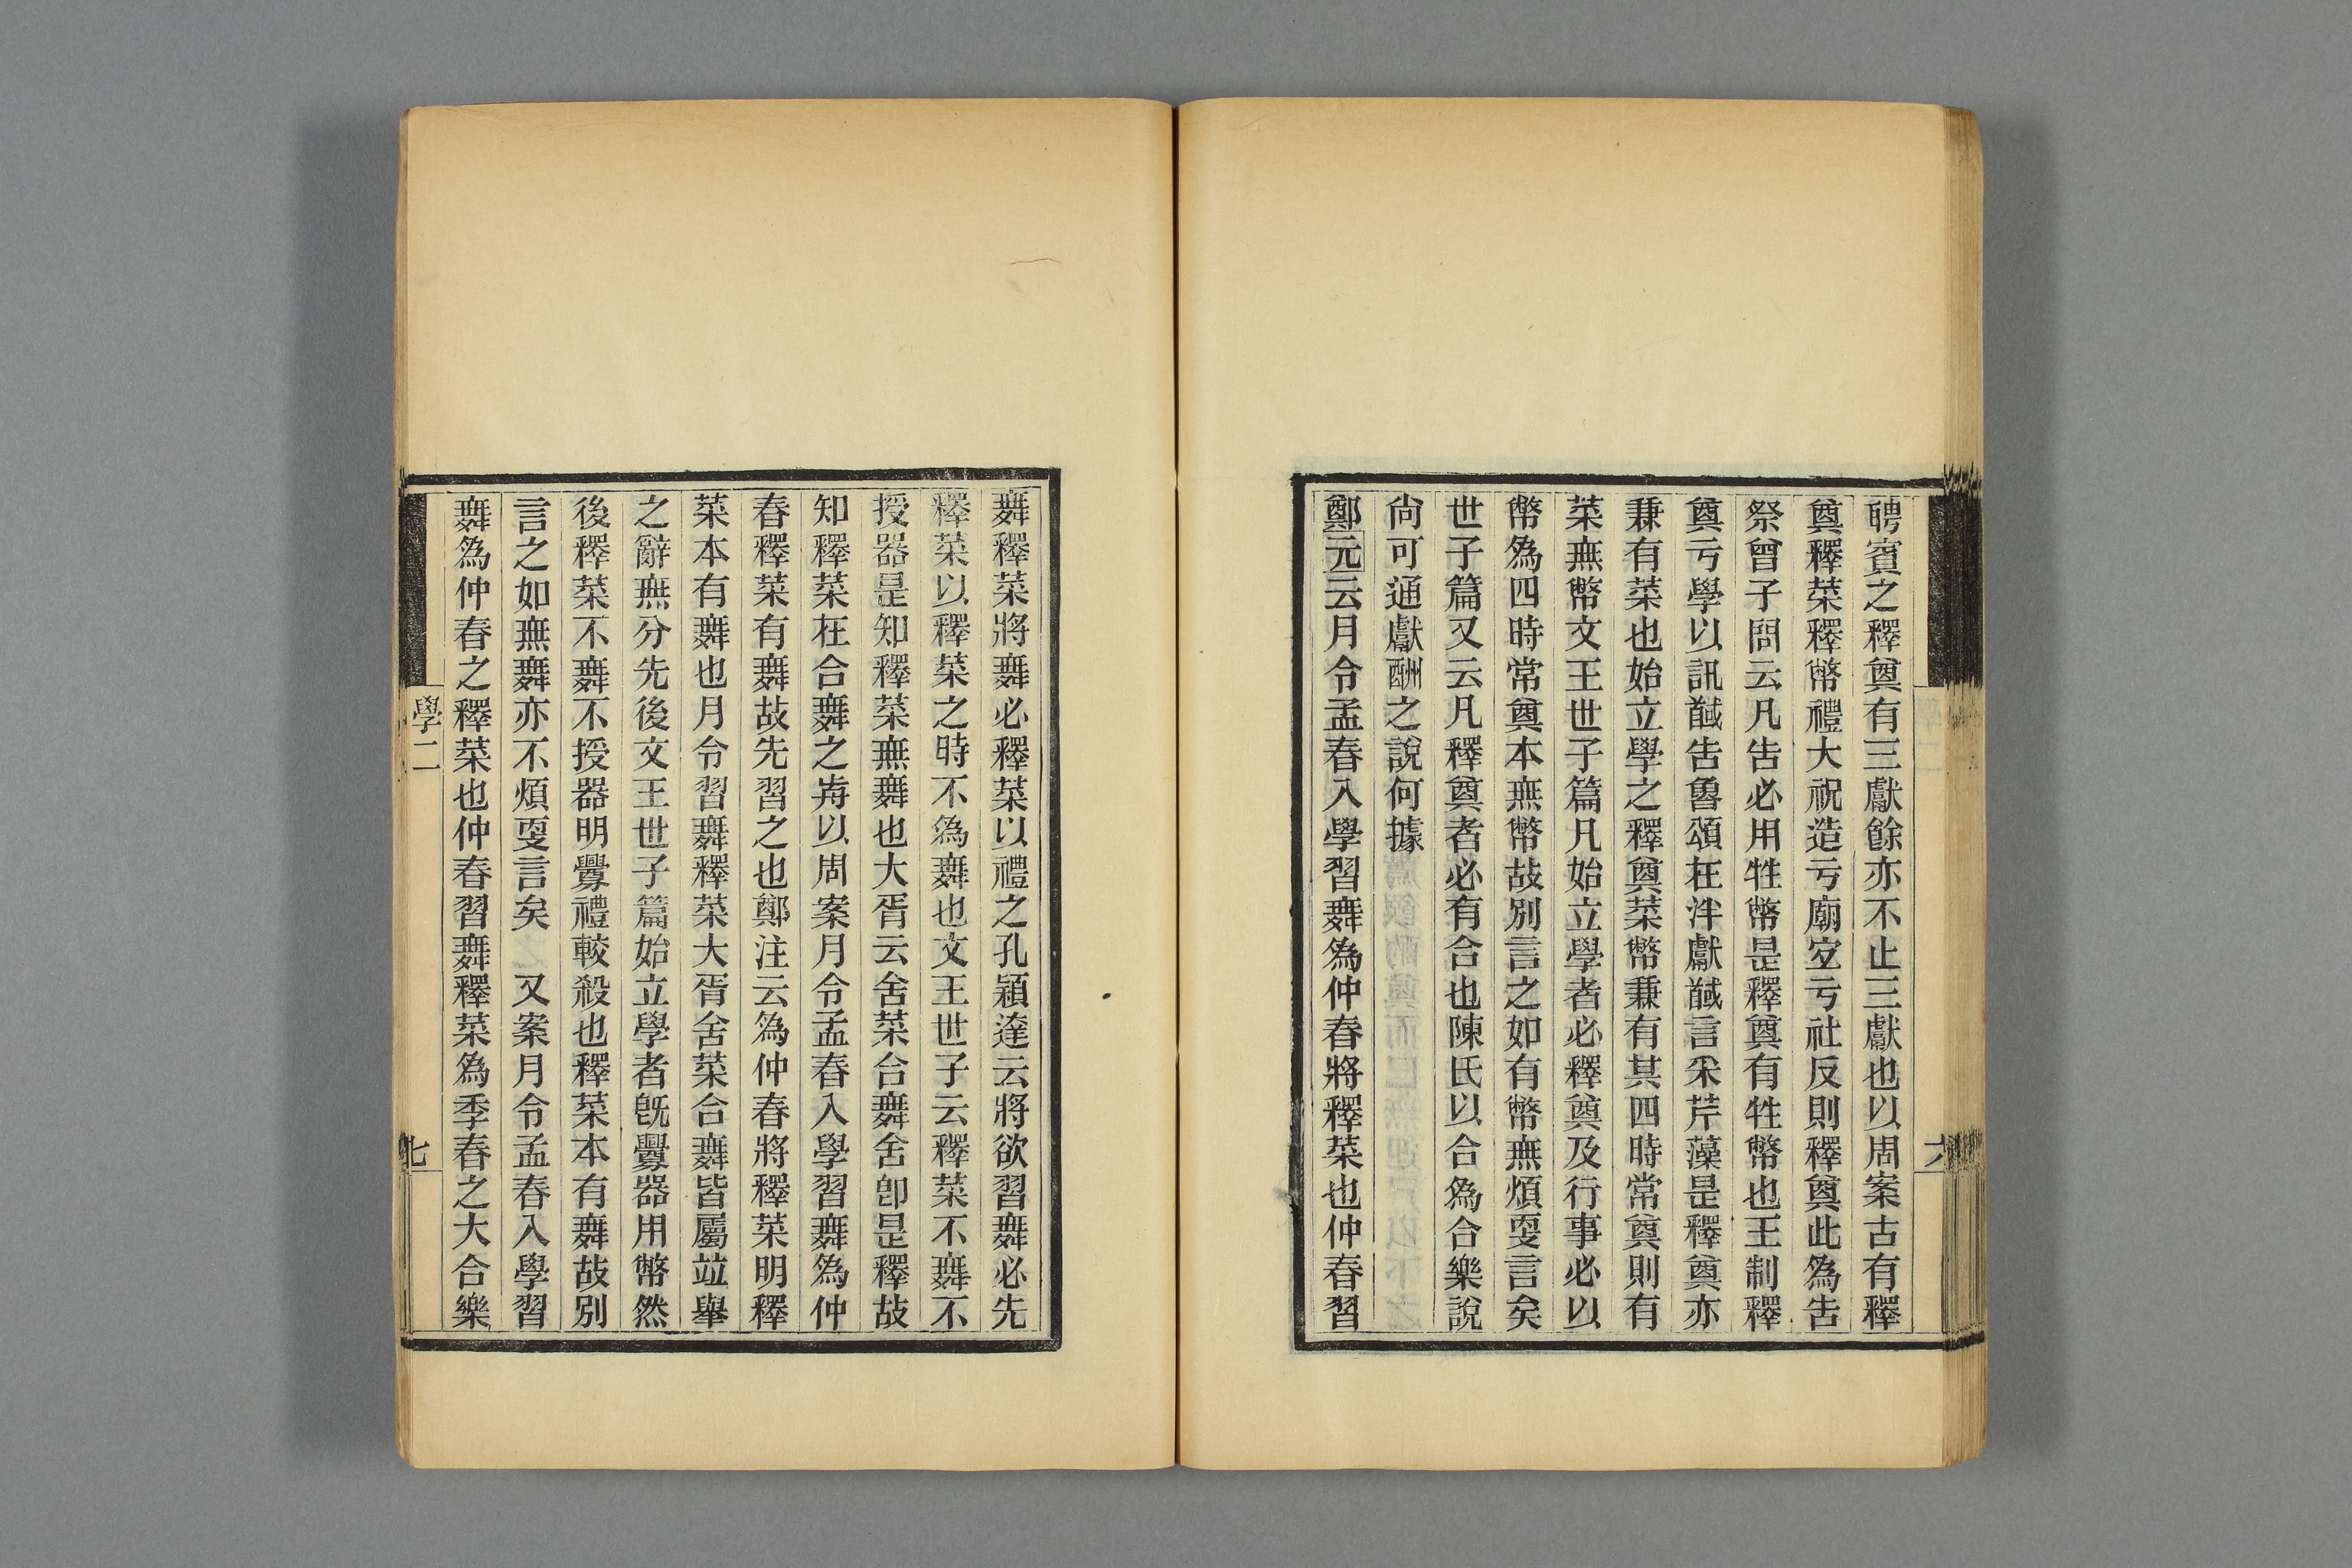 聘賓之釋奠有三獻餘亦不止三獻也以周案古有釋
奠釋菜釋幣禮大祝造亏廟宜亏社反則釋奠此為告
祭曾子問云凡告必用牲幣是釋奠有牲幣也王制釋
奠亏學以訊馘告魯頌在泮獻馘言采芹藻是釋奠亦
兼有菜也始立學之釋奠菜幣兼有其四時常奠則有
菜無幣文王世子篇凡始立學者必釋奠及行事必以
幣為四時常奠本無幣故別言之如有幣無煩㪅言矣
世子篇又云凡釋奠者必有合也陳氏以合為合樂說
尙可通獻酬之說何據
鄭元云月令孟春入學習舞為仲春將釋菜也仲春習
舞釋菜將舞必釋菜以禮之孔穎達云將欲習舞必先
釋菜以釋菜之時不為舞也文王世子云釋菜不舞不
授器是知釋菜無舞也大胥云舍菜合舞舍卽是釋故
知釋菜在合舞之歬以周案月令孟春入學習舞為仲
春釋菜有舞故先習之也鄭注云為仲春將釋菜明釋
菜本有舞也月令習舞釋菜大胥舍菜合舞皆屬竝舉
之辭無分先後文王世子篇始立學者旣釁器用幣然
後釋菜不舞不授器明釁禮較殺也釋菜本有舞故別
言之如無舞亦不煩㪅言矣　又案月令孟春入學習
舞為仲春之釋菜也仲春習舞釋菜為季春之大合樂
學二
七